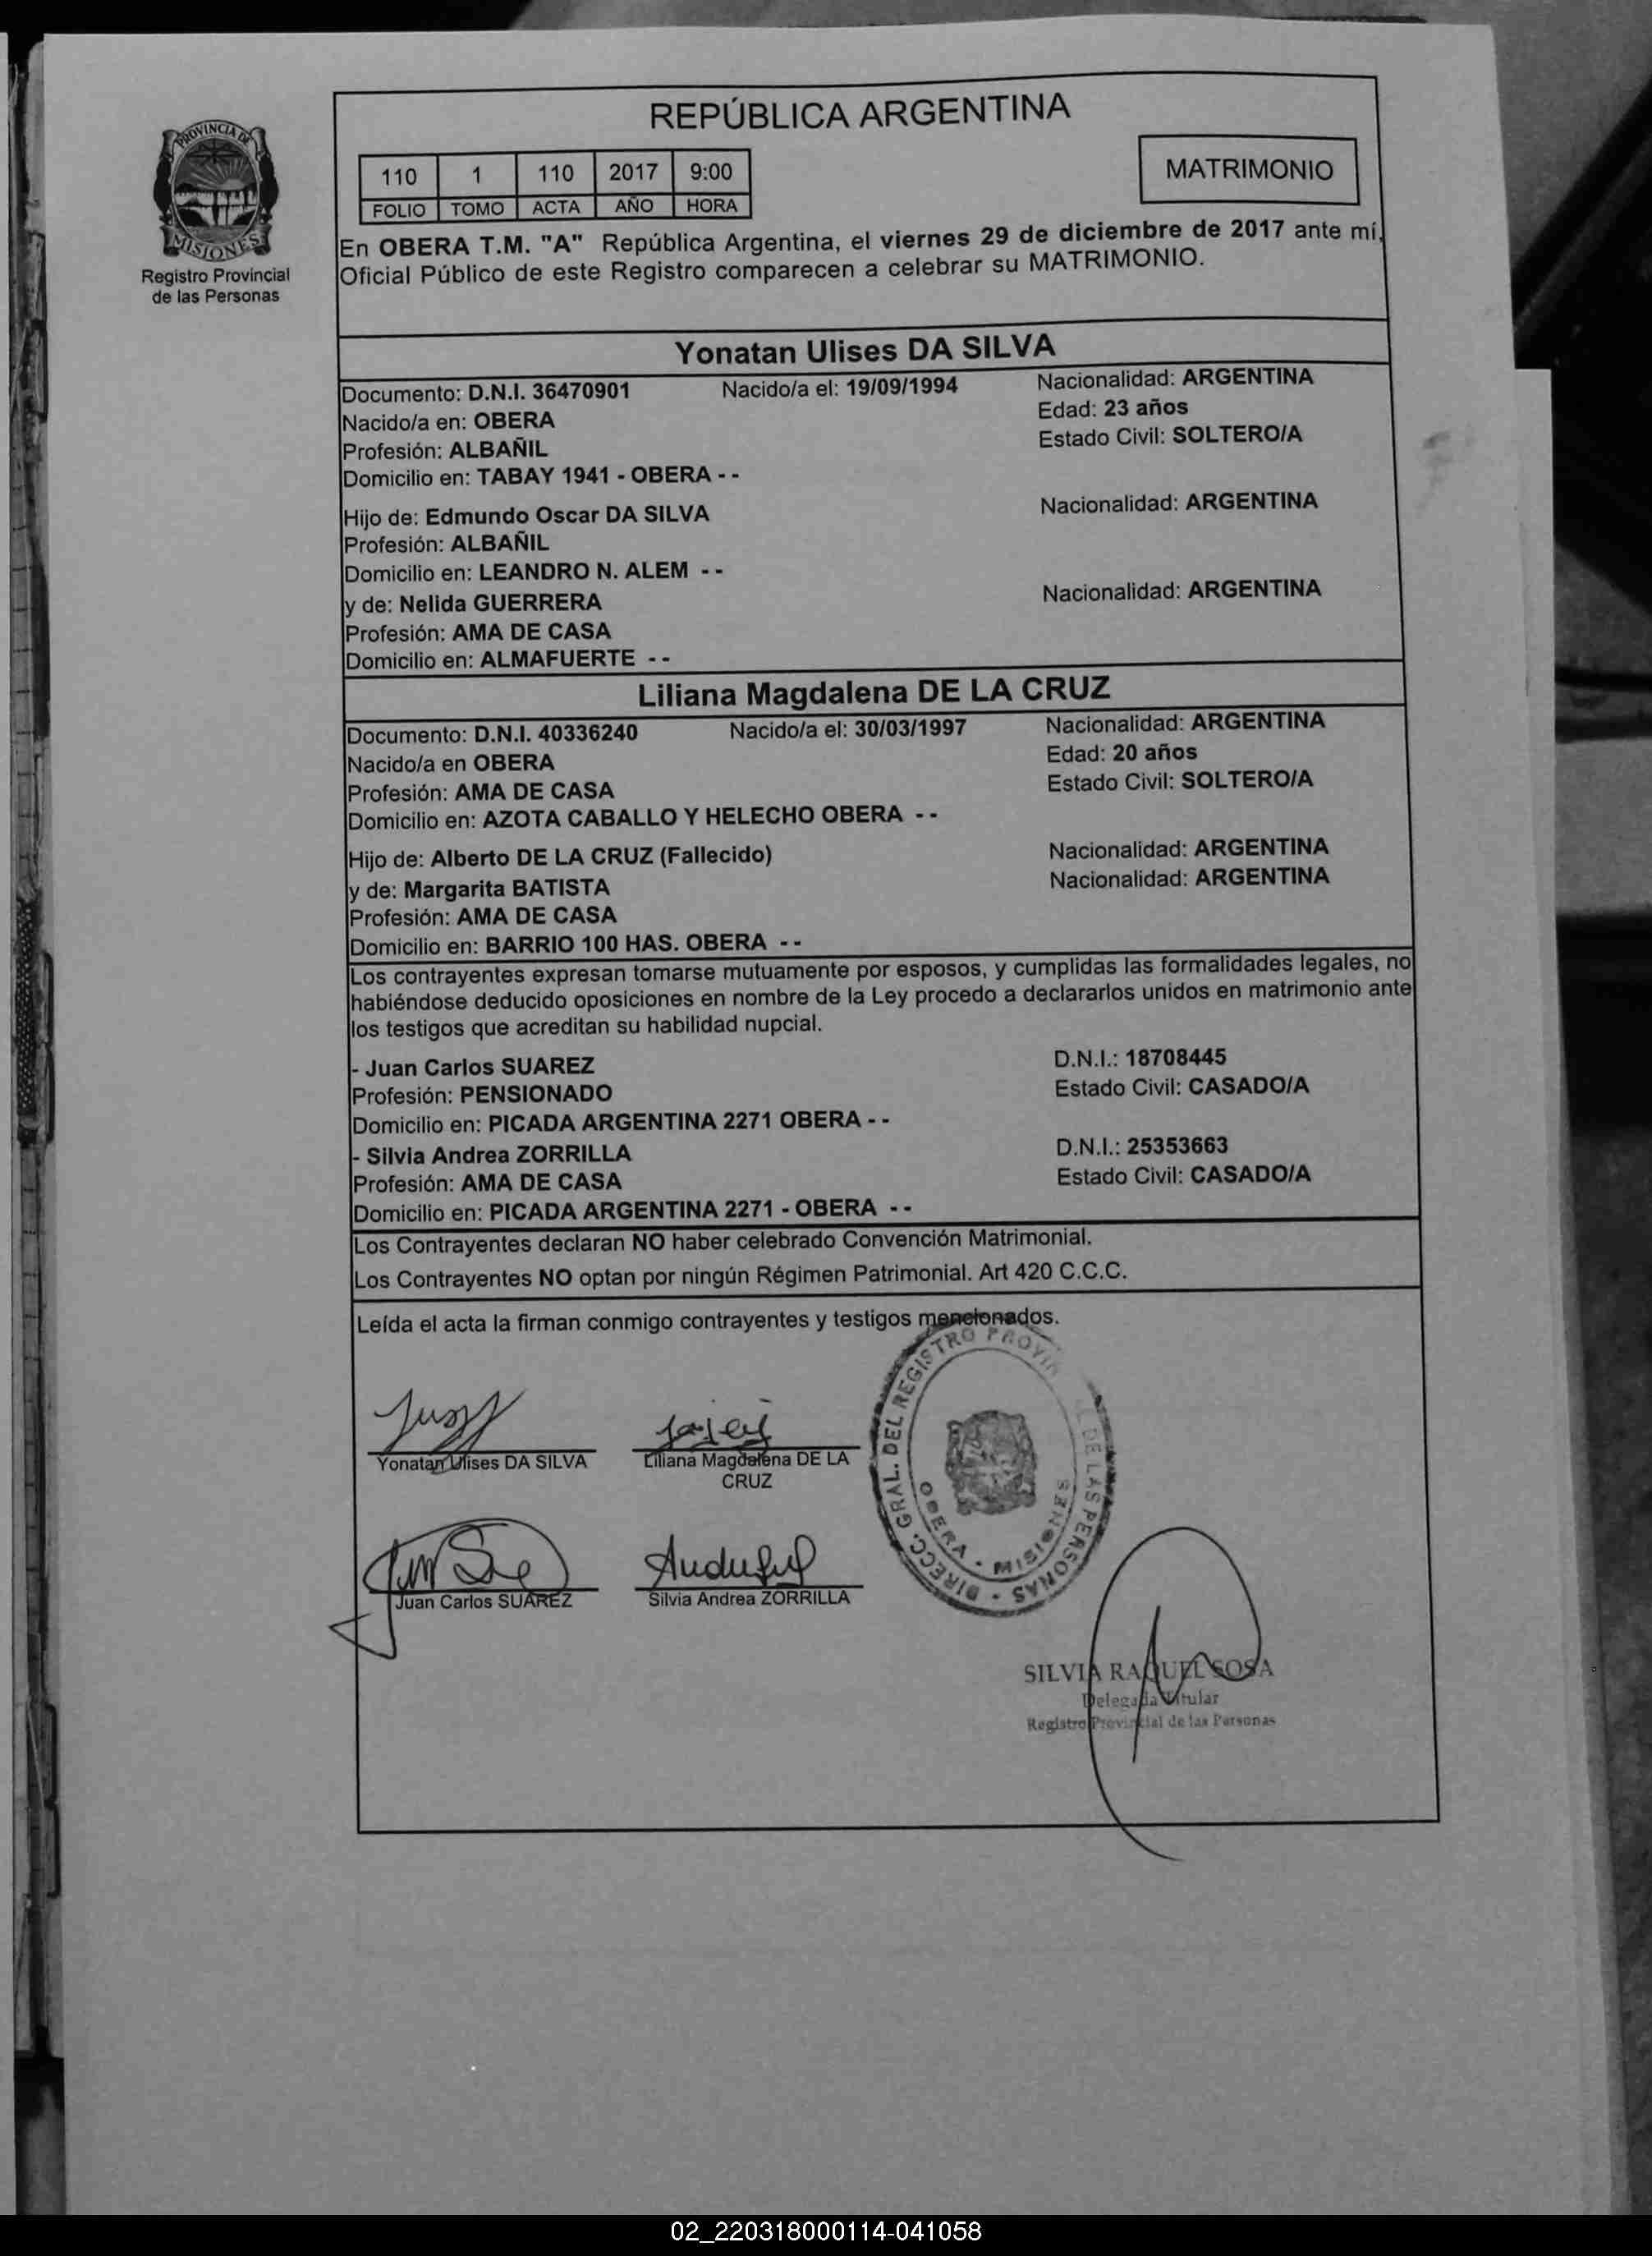 REPÚBLICA ARGENTINA
PROVINCIA DE
MISIONES
Registro Provincial
de las Personas
110 1 110 2017 9:00
FOLIO TOMO ACTA AÑO HORA
MATRIMONIO
En OBERA T.M. "A" República Argentina, el viernes 29 de diciembre de 2017 ante mí,
Oficial Público de este Registro comparecen a celebrar su MATRIMONIO.
Yonatan Ulises DA SILVA
Documento: D.N.I. 36470901 Nacido/a el: 19/09/1994 Nacionalidad: ARGENTINA
Nacido/a en: OBERA Edad: 23 años
Profesión: ALBAÑIL Estado Civil: SOLTERO/A
Domicilio en: TABAY 1941 - OBERA - -
Hijo de: Edmundo Oscar DA SILVA Nacionalidad: ARGENTINA
Profesión: ALBAÑIL
Domicilio en: LEANDRO N. ALEM - -
y de: Nelida GUERRERA Nacionalidad: ARGENTINA
Profesión: AMA DE CASA
Domicilio en: ALMAFUERTE - -
Liliana Magdalena DE LA CRUZ
Documento: D.N.I. 40336240 Nacido/a el: 30/03/1997 Nacionalidad: ARGENTINA
Nacido/a en OBERA Edad: 20 años
Profesión: AMA DE CASA Estado Civil: SOLTERO/A
Domicilio en: AZOTA CABALLO Y HELECHO OBERA - -
Hijo de: Alberto DE LA CRUZ (Fallecido) Nacionalidad: ARGENTINA
y de: Margarita BATISTA Nacionalidad: ARGENTINA
Profesión: AMA DE CASA
Domicilio en: BARRIO 100 HAS. OBERA - -
Los contrayentes expresan tomarse mutuamente por esposos, y cumplidas las formalidades legales, no
habiéndose deducido oposiciones en nombre de la Ley procedo a declararlos unidos en matrimonio ante
los testigos que acreditan su habilidad nupcial.
- Juan Carlos SUAREZ D.N.I.: 18708445
Profesión: PENSIONADO Estado Civil: CASADO/A
Domicilio en: PICADA ARGENTINA 2271 OBERA - -
- Silvia Andrea ZORRILLA D.N.I.: 25353663
Profesión: AMA DE CASA Estado Civil: CASADO/A
Domicilio en: PICADA ARGENTINA 2271 - OBERA - -
Los Contrayentes declaran NO haber celebrado Convención Matrimonial.
Los Contrayentes NO optan por ningún Régimen Patrimonial. Art 420 C.C.C.
Leída el acta la firman conmigo contrayentes y testigos mencionados.
Yonatan Ulises DA SILVA
Liliana Magdalena DE LA
CRUZ
DIRECC. GRAL. DEL REGISTRO DE LAS PERSONAS
OBERA - MISIONES
Juan Carlos SUAREZ
Silvia Andrea ZORRILLA
SILVIA RAQUEL SOSA
Delegada Titular
Registro Provincial de las Personas
02_220318000114-041058